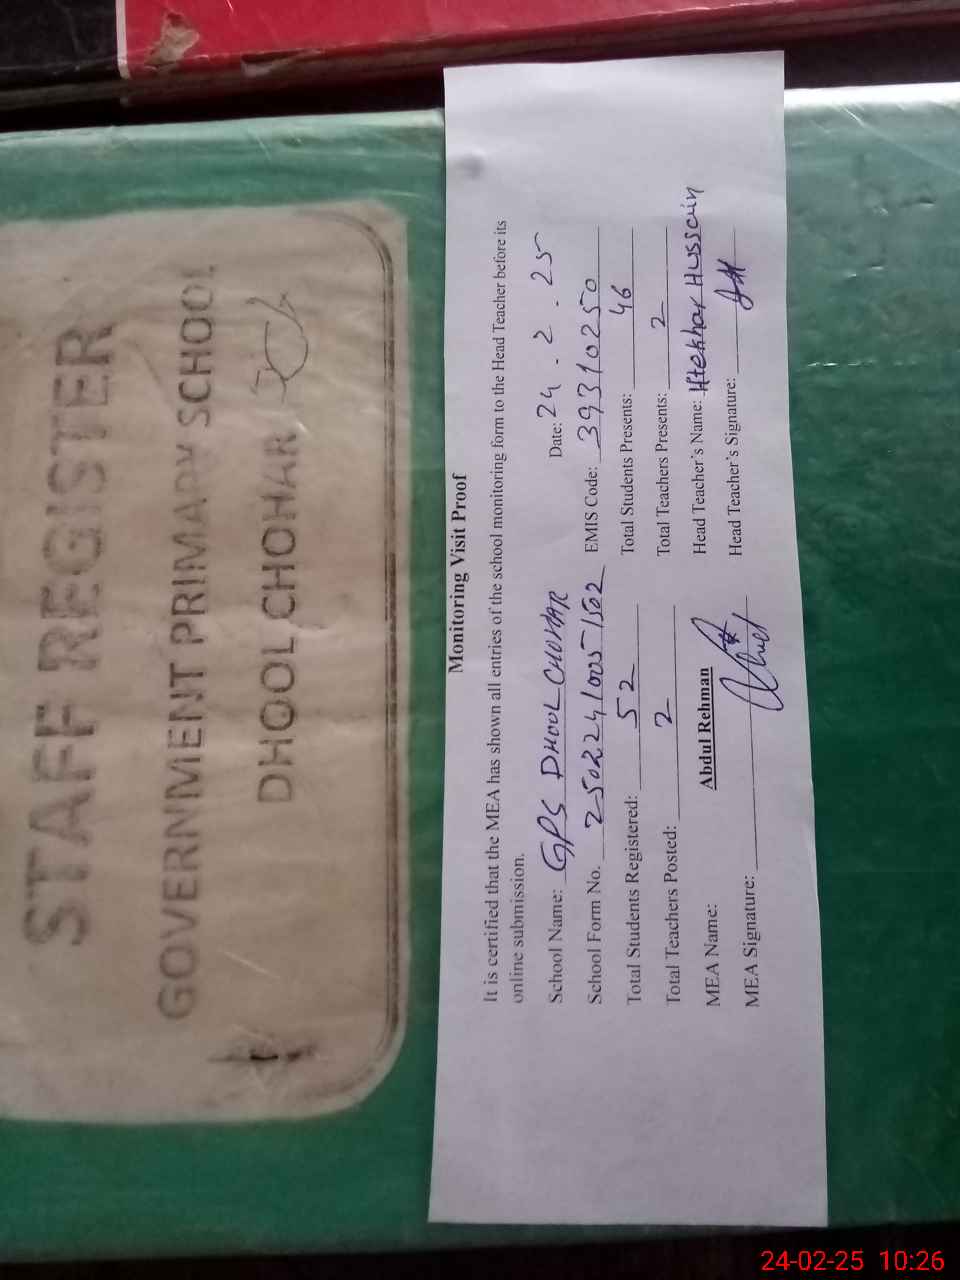 STAFF REGISTER
GOVERNMENT PRIMARY SCHOOL
DHOOL CHOHAR
Monitoring Visit Proof
It is certified that the MEA has shown all entries of the school monitoring form to the Head Teacher before its
online submission.
School Name: GPS DHOOL CHOHAR Date: 24 . 2 . 25
School Form No. 25022410051502 EMIS Code: 39310250
Total Students Registered: 52 Total Students Presents: 46
Total Teachers Posted: 2 Total Teachers Presents: 2
MEA Name: Abdul Rehman Head Teacher's Name: Iftekhar Hussain
MEA Signature: Head Teacher's Signature:
24-02-25 10:26